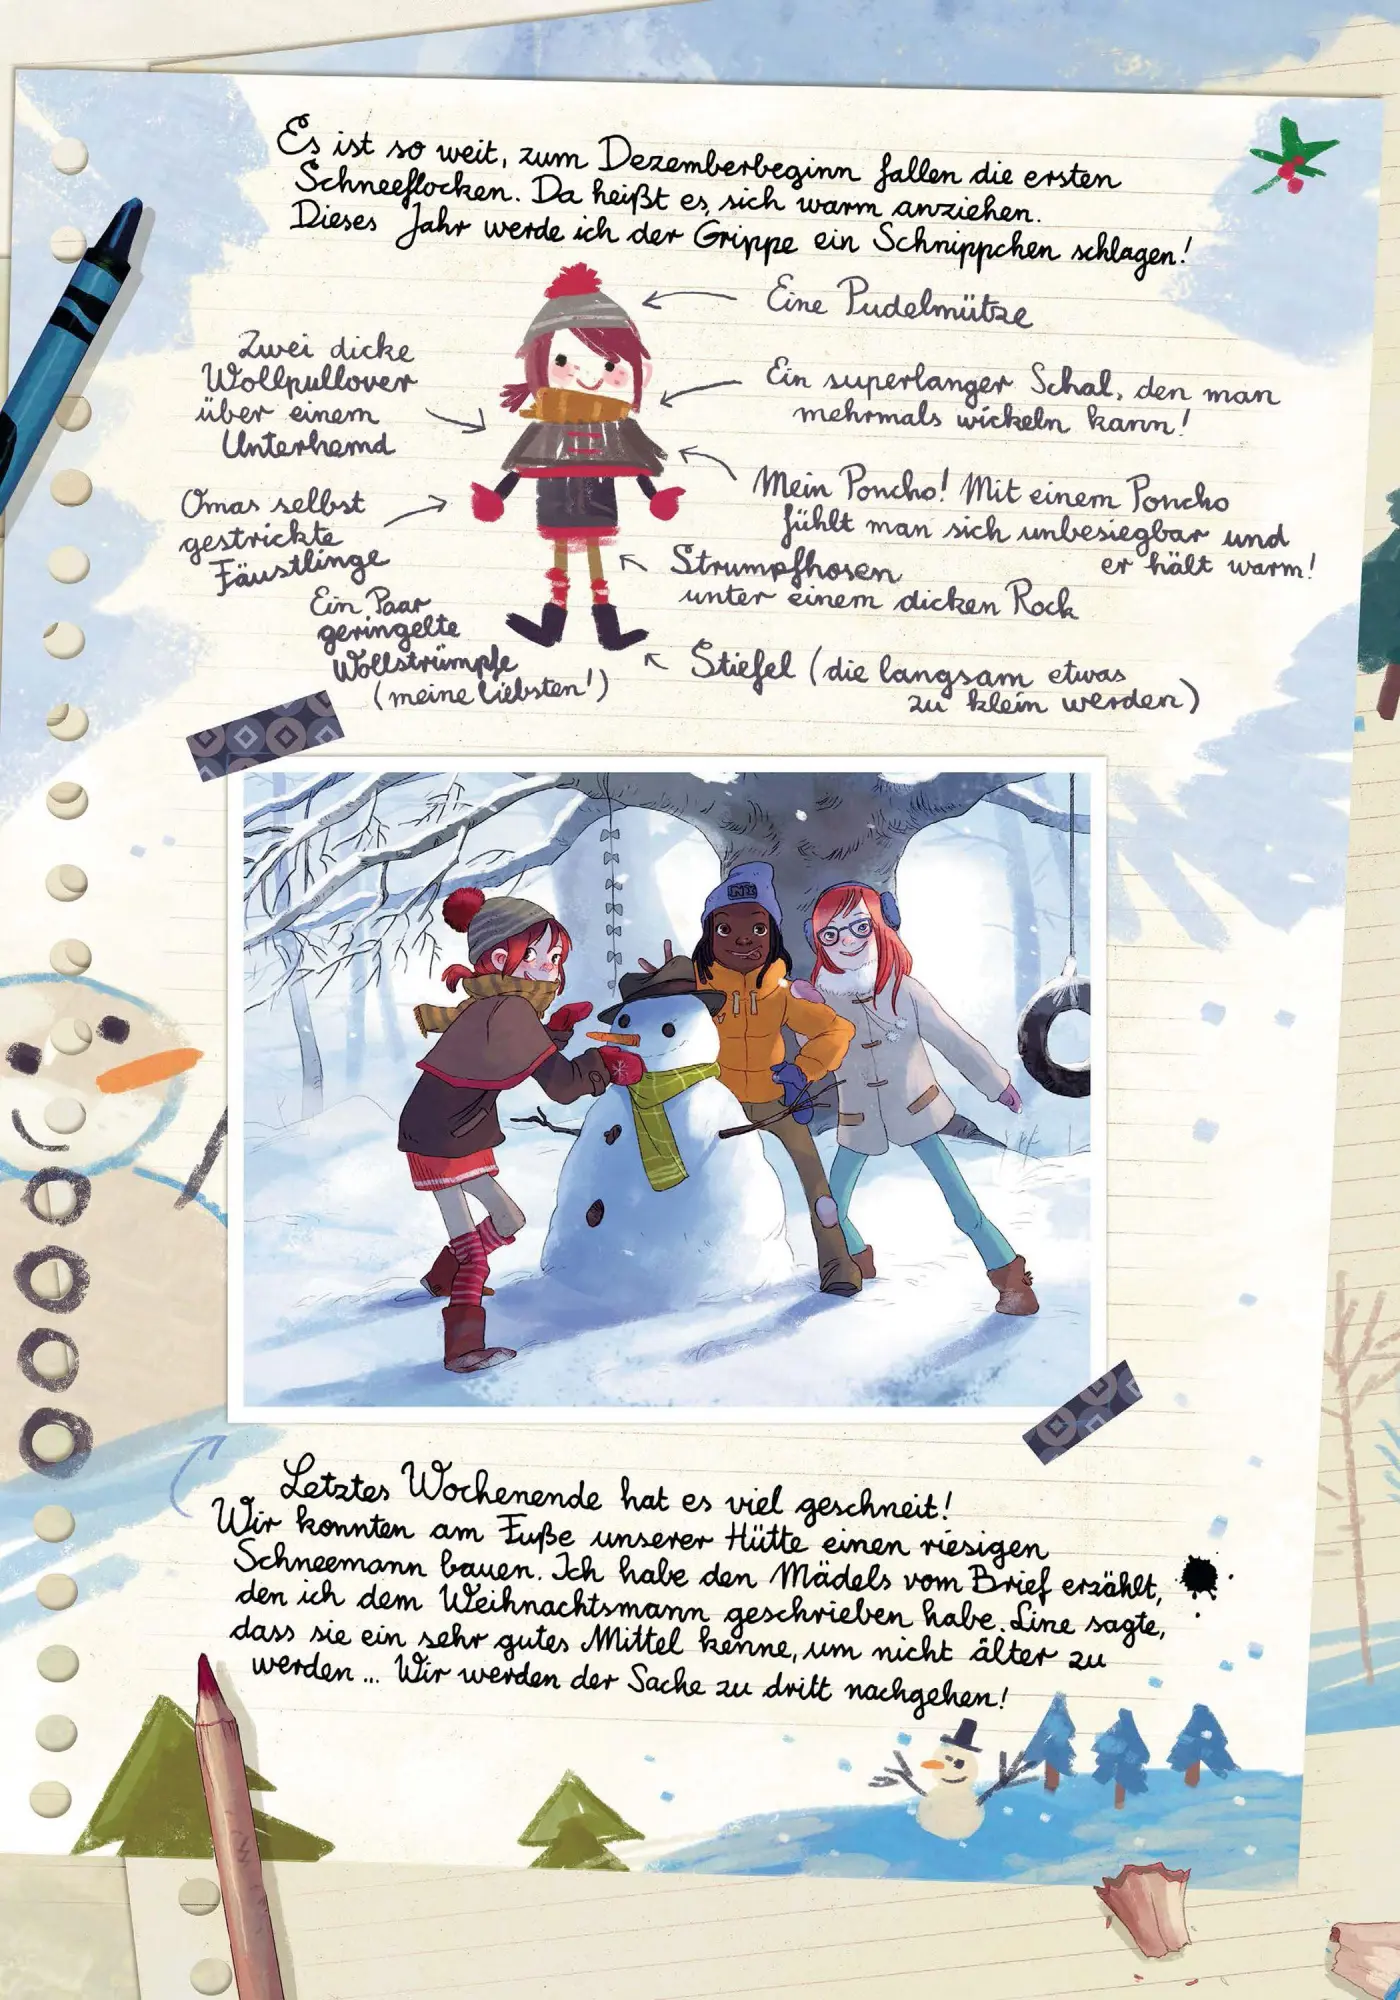 Es ist so weit, zum Dezemberbeginn fallen die ersten
Schneeflocken. Da heißt es, sich warm anziehen.
Dieses Jahr werde ich der Grippe ein Schnippchen schlagen!
Eine Pudelmütze
Zwei dicke
Wollpullover
über einem
Unterhemd
Ein superlanger Schal, den man
mehrmals wickeln kann!
Omas selbst
gestrickte
Fäustlinge
Mein Poncho! Mit einem Poncho
fühlt man sich unbesiegbar und
er hält warm!
Strumpfhosen
unter einem dicken Rock
Ein Paar
geringelte
Wollstrümpfe
(meine liebsten!)
Stiefel (die langsam etwas
zu klein werden)
Letztes Wochenende hat es viel geschneit!
Wir konnten am Fuße unserer Hütte einen riesigen
Schneemann bauen. Ich habe den Mädels vom Brief erzählt,
den ich dem Weihnachtsmann geschrieben habe. Line sagte,
dass sie ein sehr gutes Mittel kenne, um nicht älter zu
werden... Wir werden der Sache zu dritt nachgehen!